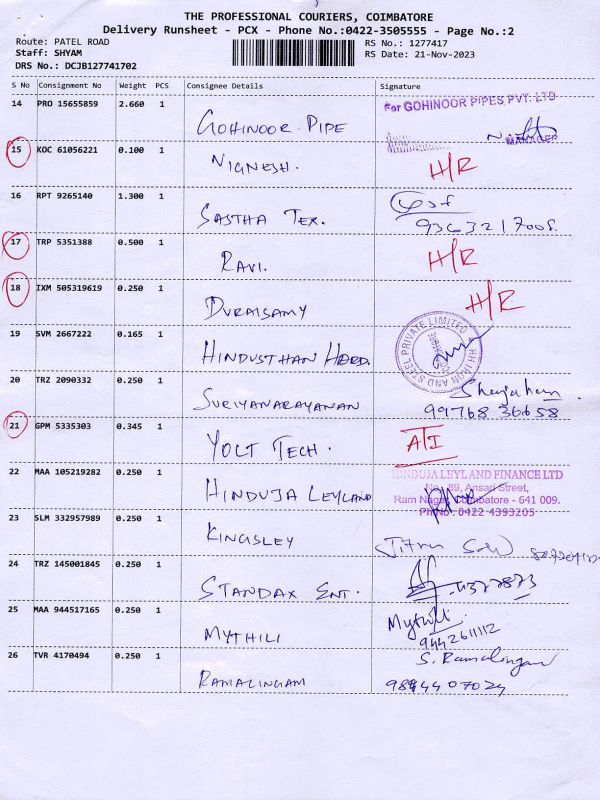 THE PROFESSIONAL COURIERS, COIMBATORE
Delivery Runsheet - PCX - Phone No.:0422-3505555 - Page No.:2
Route: PATEL ROAD RS No.: 1277417
Staff: SHYAM RS Date: 21-Nov-2023
DRS No.: DCJB127741702
S No Consignment No Weight PCS Consignee Details Signature
14 PRO 15655859 2.660 1 GOHINOOR PIPE For GOHINOOR PIPES PVT. LTD
MANAGER
15 KOC 61056221 0.100 1 VIGNESH. H/R
16 RPT 9265140 1.300 1 SASTHA TEX.
17 TRP 5351388 0.500 1 RAVI. H/R
18 IXM 505319619 0.250 1 DURAISAMY H/R
19 SVM 2667222 0.165 1 HINDUSTHAN HARD. IRON AND STEEL PRIVATE LIMITED
20 TRZ 2090332 0.250 1 SURIYANARAYANAN Shajahan
99768 36658
21 GPM 5335303 0.345 1 YOLT TECH. ATI
22 MAA 105219282 0.250 1 HINDUJA LEYLAND HINDUJA LEYLAND FINANCE LTD
No. 89, Ansari Street,
Ram Nagar, Coimbatore - 641 009.
Ph No: 0422 4393205
23 SLM 332957989 0.250 1 KINGSLEY
24 TRZ 145001845 0.250 1 STANDAX ENT.
25 MAA 944517165 0.250 1 MYTHILI Mythili
9442611112
26 TVR 4170494 0.250 1 RAMALINGAM S. Ramalingam
9894407024